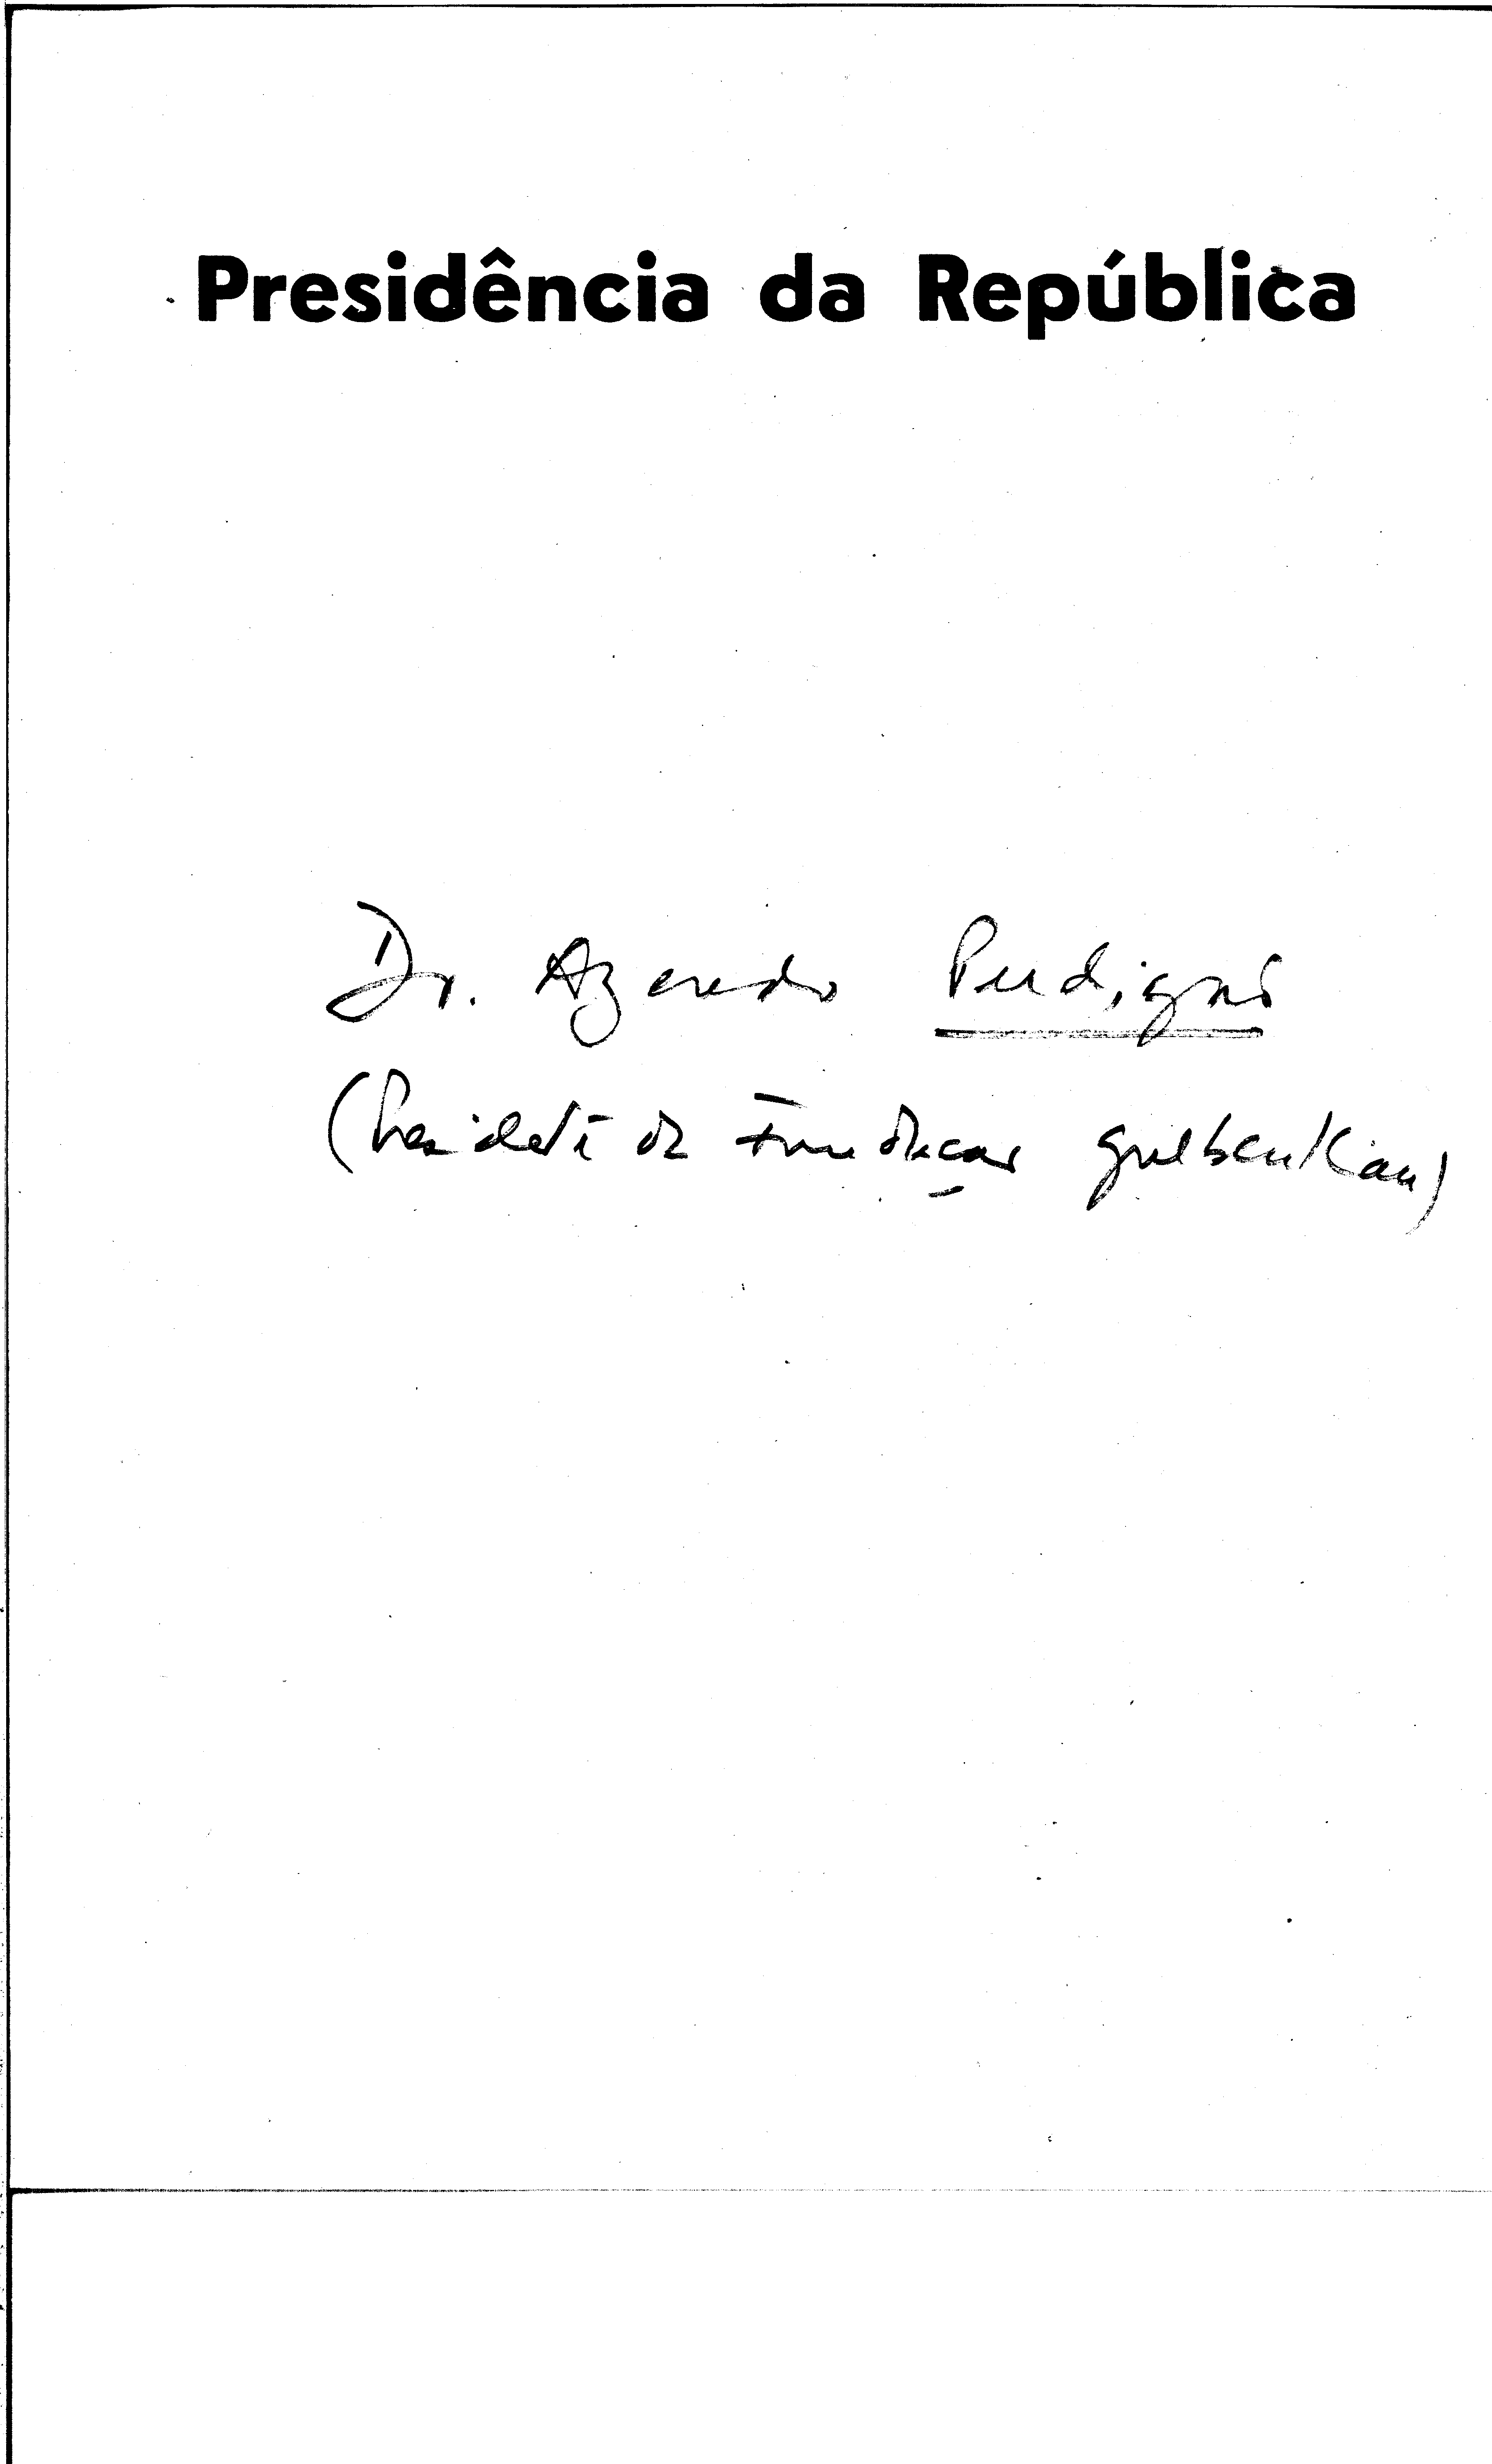 Presidência da República
Dr. Azeredo Perdigão
(Presidente da Fundação Gulbenkian)